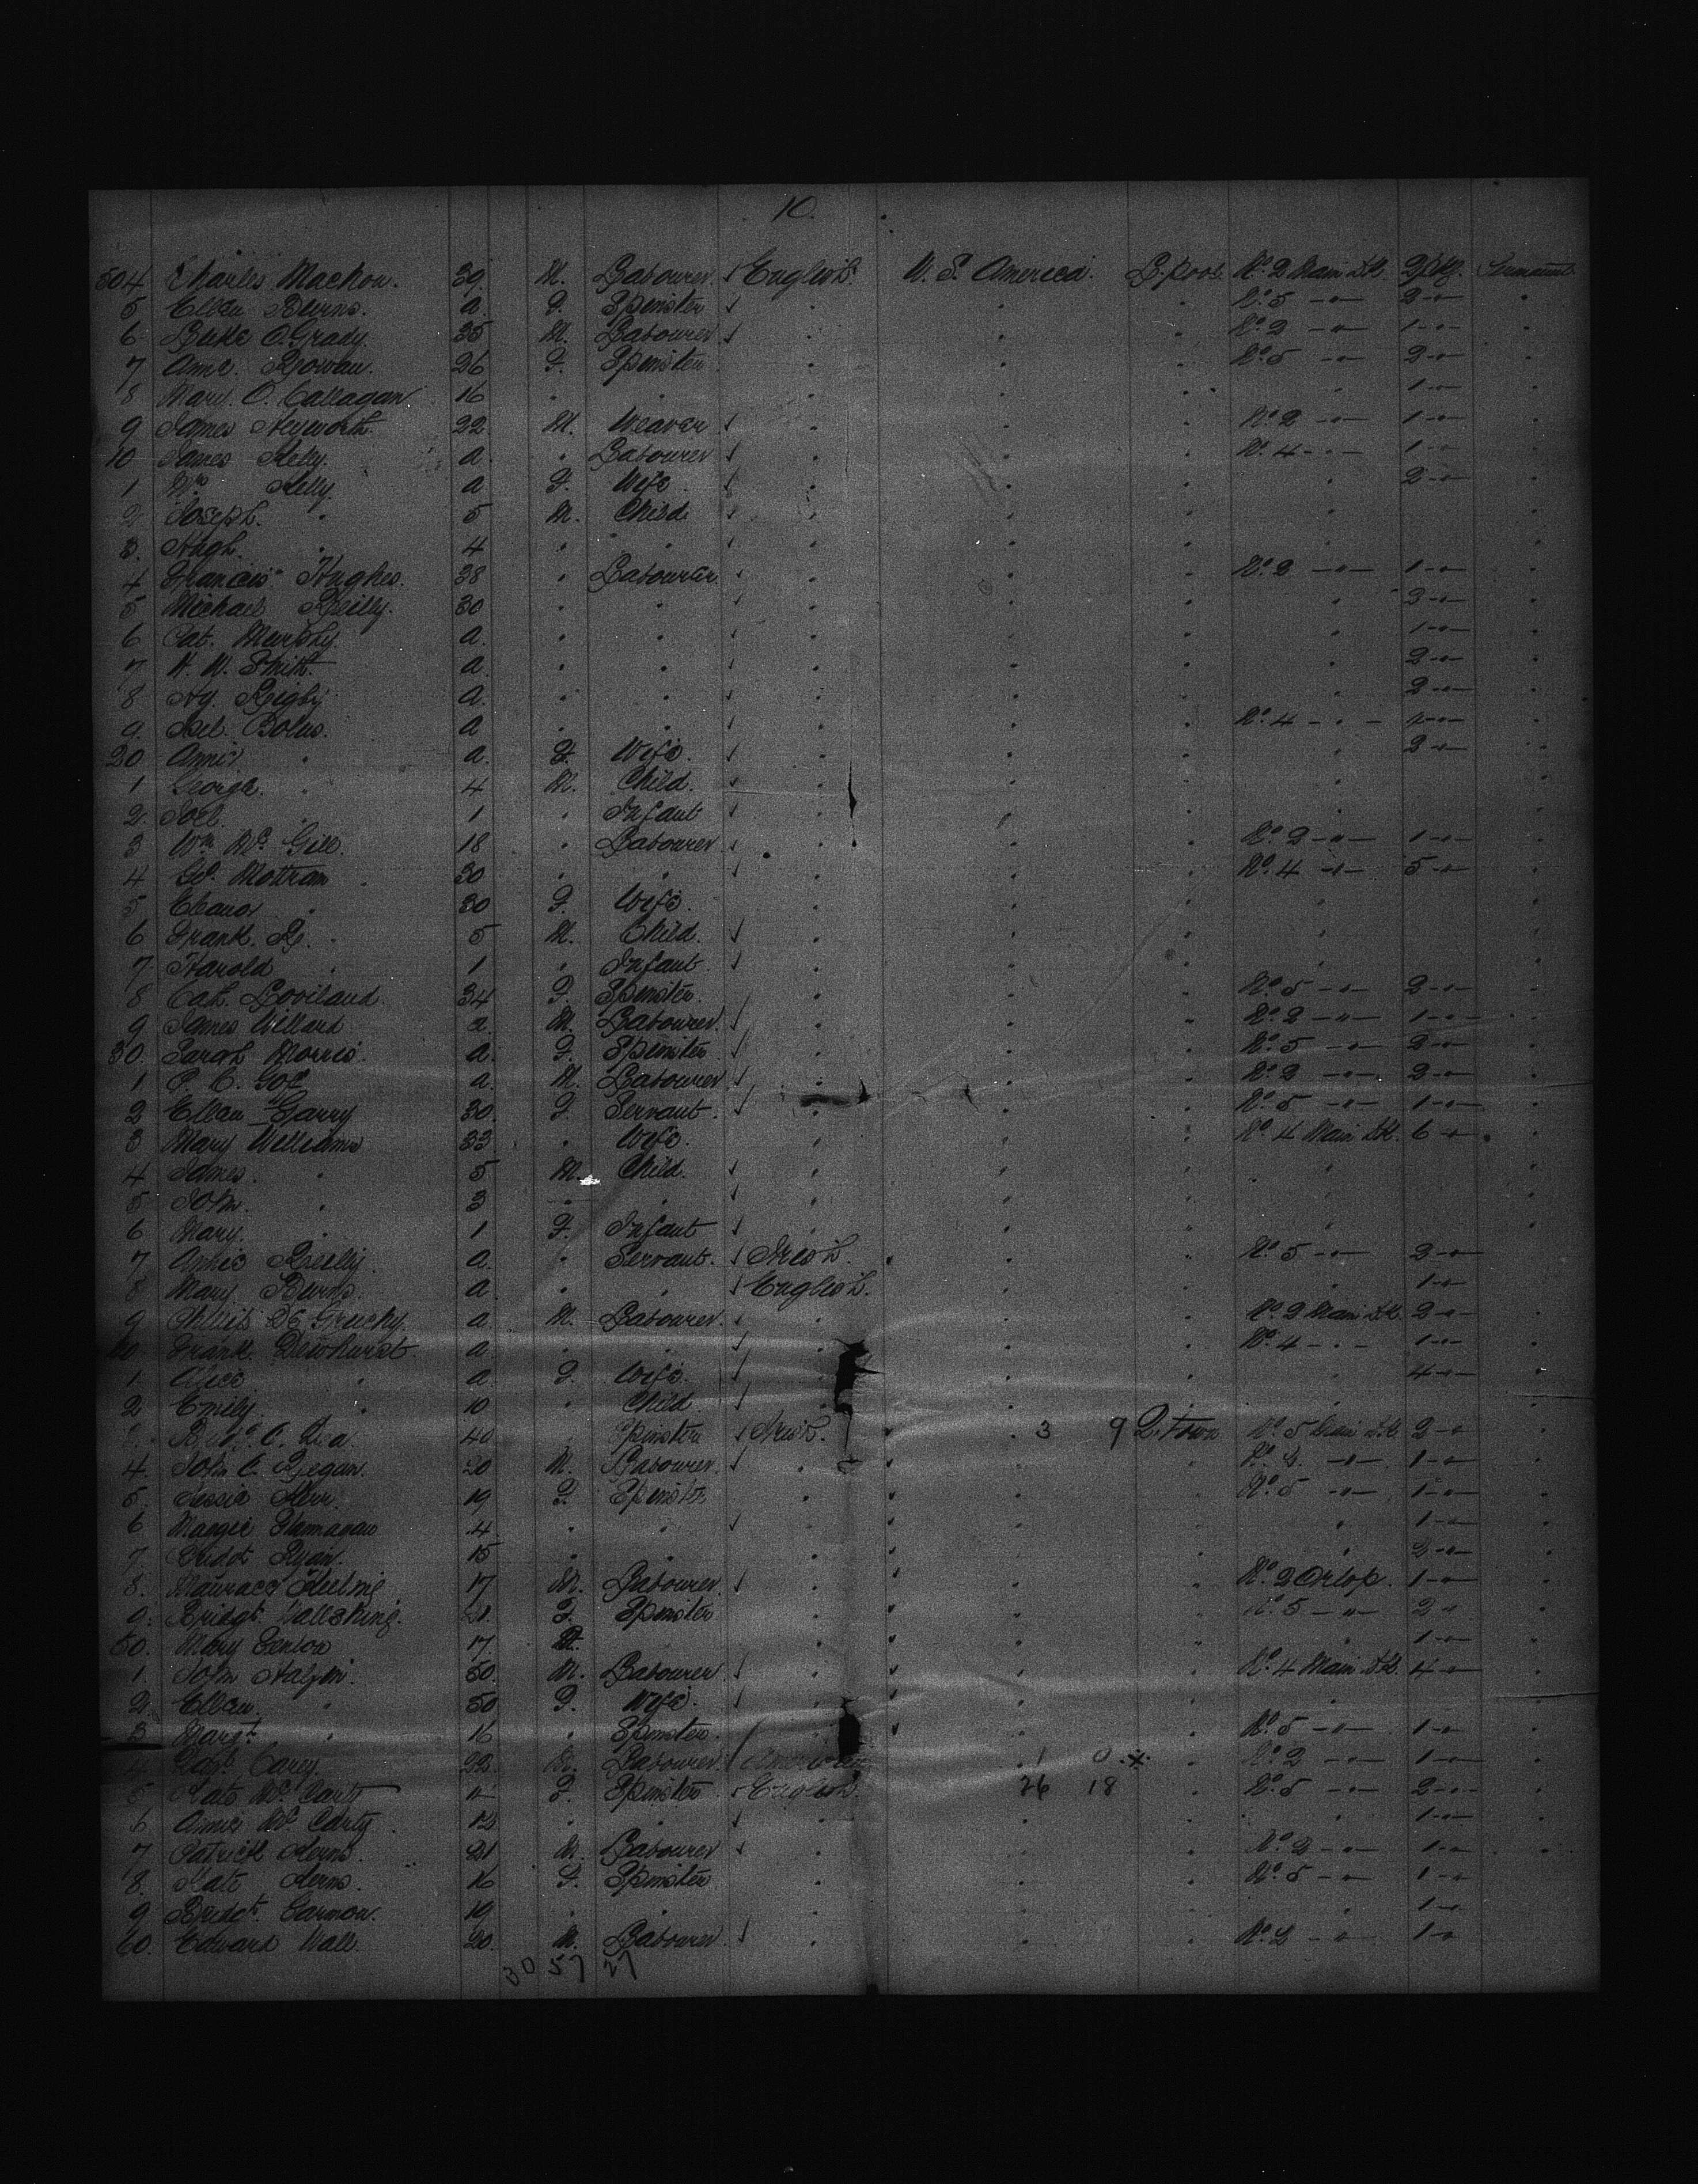 10.
504 Charles Machon. 30 M. Labourer. English. U. S. America. L.pool. No. 2 Main Dk. 2 Pkg. Permanent.
5 Ellen Burns. a. F. Spinster No. 5 -"- 2 -"-
6 Luke O. Grady. 35 M. Labourer. No. 2 -"- 1 -"-
7 Ann. Rowan. 26 F. Spinster No. 5 -"- 2 -"-
8 Mary. O. Callagan. 16 1 -"-
9 James Heyworth. 22 M. Weaver No. 2 -"- 1 -"-
10 James Kelly. a. Labourer No. 4 - " - 1 -"-
1 Mrs. Kelly. a F. Wife 2 -"-
2 Joseph. " 5 M. Child
3. Hugh. " 4
4 Francis Hughes. 38 " Labourer No. 2 -"- 1 -"-
5 Michael Reilly. 30 2 -"-
6 Pat. Murphy. a. 1 -"-
7 W. Smith. a. 2 -"-
8 Hy. Rigby. a. 2 -"-
9. Bolus. a No. 4 - " -
20 Annie " a. F. Wife. 2 -"-
1 George. " 4 M. Child.
2. Joel. 1 " Infant
3 Wm. Mc. Gill. 18 " Labourer No. 2 -"- 1 -"-
4 Mottram 30 No. 4 -"- 5 -"-
5 Eleanor " 30 F. Wife.
6 Frank. R. " 5 M. Child.
7 Harold " 1 " Infant.
8 Cath. Loviland. 34 F. Spinster. No. 5 -"- 2 -"-
9 James Willard a. M. Labourer. No. 2 -"- 1 -"-
30. Sarah Morris. a. F. Spinster No. 5 -"- 2 -"-
1 P. C. Goff a. M. Labourer No. 2 -"- 2 -"-
2 Ellen Garry 30. F. Servant. No. 5 -"- 1 -"-
3 Mary Williams 33 " Wife. No. 4 Main Dk. 6 -"-
4 James. " 5 M. Child.
5 John. " 3
6 Mary. " 1 F. Infant
7 Annie Reilly. a. " Servant. Irish. No. 5 -"- 2 -"-
8 Mary Burns. a. English. 1 -"-
9 De Gruchy. a. M. Labourer. No. 2 Main Dk. 2 -"-
40 Frank. Dewhurst. a. No. 4 - " - 1 -"-
1. Alice " a. F. Wife. 4 -"-
2 Emily. " 10 " Child.
O. Rea. 40 Spinster Irish. 3 9 Q. Town No. 5 Main Dk. 2 -"-
4. John O. Regan. 20 M. Labourer. -"- 1 -"-
5. Jessie Kerr. 19 F. Spinster No. 5 -"- 1 -"-
6 Maggie Flannagan 1 -"-
7. Bridgt Ryan. 15 2 -"-
8. Maurace 17 M. Labourer. No. 2 Orlop. 1 -"-
9. Bridgt. 21. F. Spinster No. 5 -"- 2 "
50. Mary 17 1 -"-
1. John Halpin. 50. M. Labourer No. 4 Main Dk. 4 -"-
2. Ellen " 50 F. Wife.
3 Margt. " 16 " Spinster. No. 5 -"- 1 -"-
Carey. 22. M. Labourer. American 1 0 No. 2 -"- 1 -"-
5 Kate Mc. Carty F. Spinster English. 26 18 No. 5 -"- 2 -"-
6 Annie Mc. Carty. 1 -"-
7 Patrick Kerns. 21 M. Labourer No. 2 -"- 1 -"-
8. Kate Kerns. 16 F. Spinster No. 5 -"- 1 -"-
9 Bridgt. Gannon. 19 1 -"-
60. Edward Wall. 20. M. Labourer. No. 2 -"- 1 -"-
30 57 27